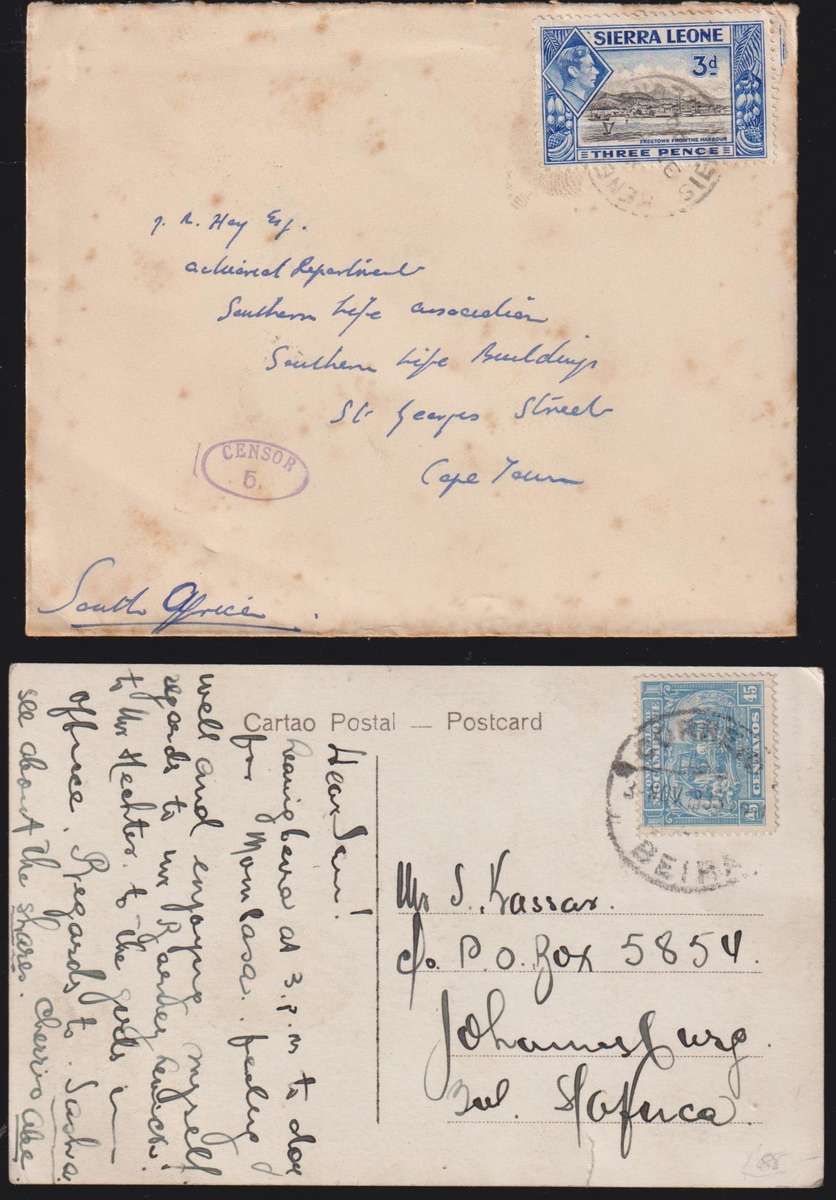 SIERRA LEONE
3d
FREETOWN FROM THE HARBOUR
THREE PENCE
Hay Esq.
Southern Life Association
Southern Life Buildings
St Georges Street
Cape Town
CENSOR
5.
South Africa
Cartao Postal — Postcard
45
MOÇAMBIQUE
CENTAVOS
45
CORREIO
NOV
BEIRA
Dear Sam!
Leaving Beira at 3.p.m to day
for Mombasa. feeling
well and enjoying myself
regards to
to Mr Hechter. to the girls in
office. Regards to. Sasha
see about the shares. Cherrio Abe
Mr S. Kassar.
c/o. P.O. Box 5854
Johannesburg.
S/Africa.